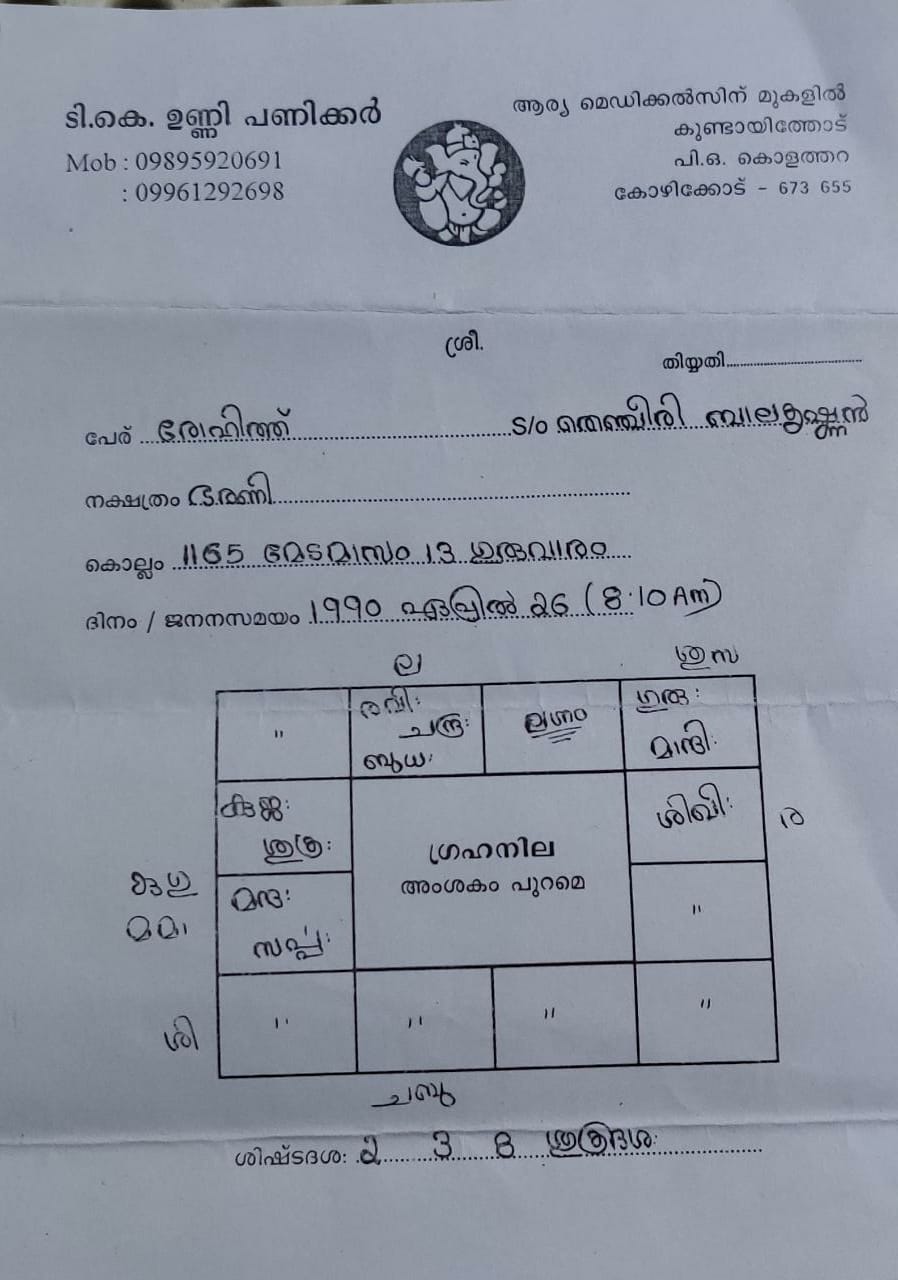 ടി.കെ. ഉണ്ണി പണിക്കർ
Mob : 09895920691
: 09961292698
ആര്യ മെഡിക്കൽസിന് മുകളിൽ
കുണ്ടായിത്തോട്
പി.ഒ. കൊളത്തറ
കോഴിക്കോട് - 673 655
ശ്രീ.
തിയ്യതി
പേര് രോഹിത്ത് S/o ബാലകൃഷ്ണൻ
നക്ഷത്രം ഭരണി
കൊല്ലം 1165 മേടമാസം 13 ഗുരുവാരം
ദിനം / ജനനസമയം 1990 ഏപ്രിൽ 26 (8:10 AM)
ല
" രവി: ലഗ്നം ഗുരു:
ചന്ദ്ര: മാന്ദി:
ബുധ:
കുജ: ശിഖി: ര
ശുക്ര: ഗ്രഹനില
അംശകം പുറമെ
മന്ദ: "
മമാ സർപ്പ:
ശി " " " "
ചബു
ശിഷ്ടദശ: 2 3 8 ശുക്രദശ: